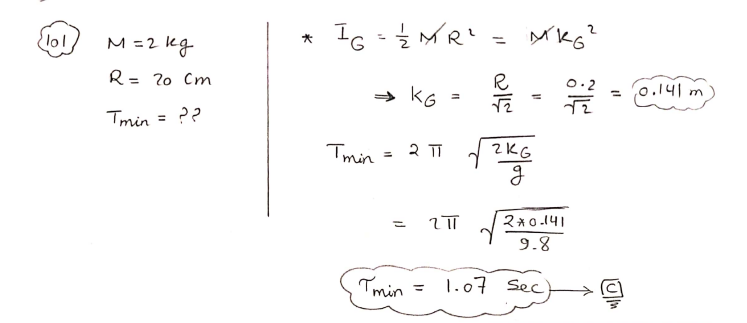 101
M = 2 kg
R = 20 cm
Tmin = ??
* I_G = 1/2 M R² = M K_G²
⇒ K_G = R/√2 = 0.2/√2 = 0.141 m
Tmin = 2 π √(2K_G/g)
= 2π √(2*0.141/9.8)
Tmin = 1.07 Sec → C